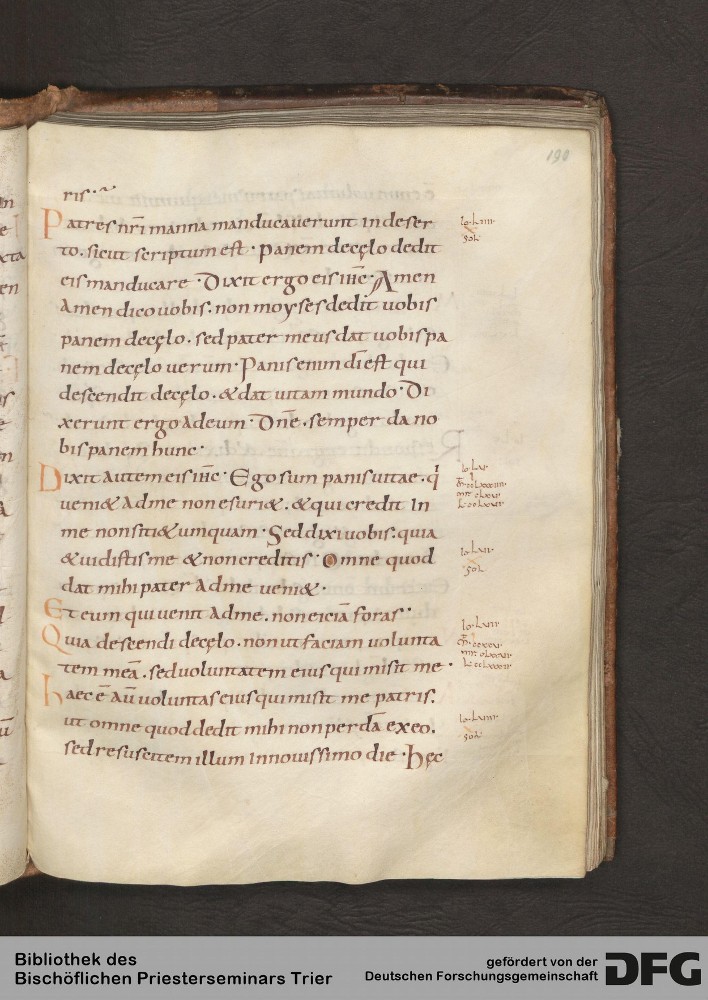 190
ris·
Patres nr̄i manna manducauerunt in deser
to. sicut scriptum est · Panem de cęlo dedit
eis manducare · Dixit ergo eis ih̄c · Amen
Amen dico uobis. non moyses dedit uobis
panem de cęlo. sed pater meus dat uobis pa
nem de cęlo uerum · Panis enim d̄i est qui
descendit de cęlo. & dat uitam mundo · Di
xerunt ergo ad eum · Dn̄e. semper da no
bis panem hunc ·
Dixit autem eis ih̄c · Ego sum panis uitae. q̇
ueni& ad me non esuri&. & qui credit in
me non siti& umquam · Sed dixi uobis. quia
& uidistis me & non creditis · Omne quod
dat mihi pater ad me ueni& ·
Et eum qui uenit ad me. non eiciā foras
Quia descendi de cęlo. non ut faciam uolunta
tem meā. sed uoluntatem eius qui misit me ·
haec ē aū uoluntas eius qui misit me patris.
ut omne quod dedit mihi non perdā ex eo.
sed resuscitem illum in nouissimo die · hęc
Bibliothek des
Bischöflichen Priesterseminars Trier
gefördert von der
Deutschen Forschungsgemeinschaft
DFG